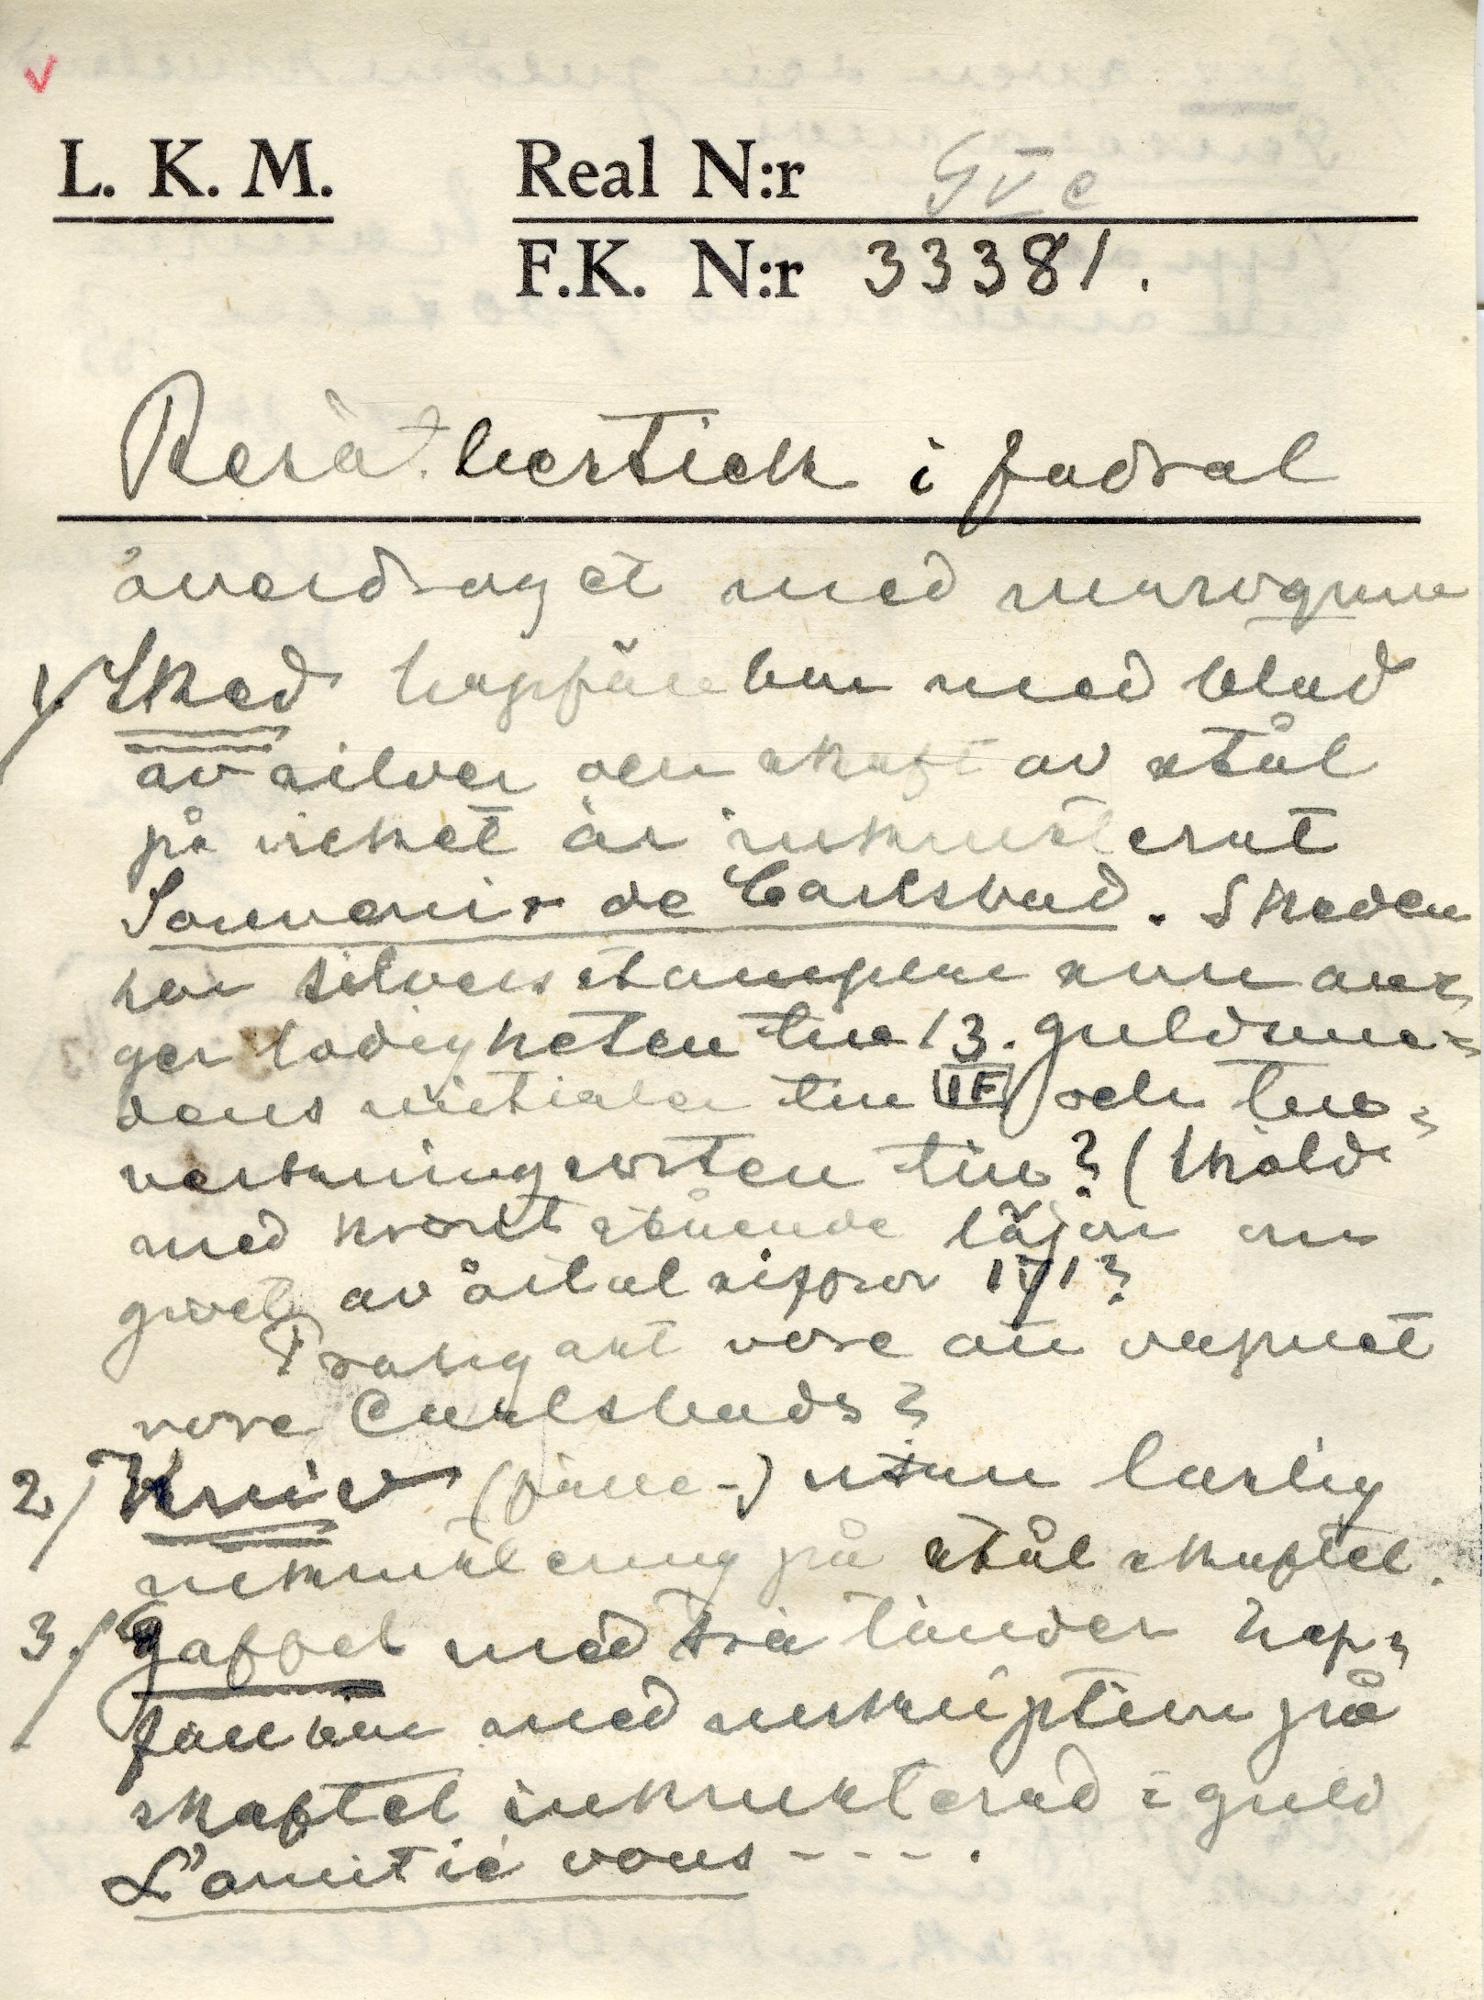 L. K. M.
Real N:r GVe
F.K. N:r 33381.
Resätbestick i fodral
överdraget med maroquin
1/ Sked hopfällbar med blad
av silver och skaft av stål
på vilket är inkrusterat
Souvenir de Carlsbad. Skeden
har silverstämplar som an-
ger lödigheten till 13. guldsme-
dens initialer till IF och till-
verkningsorten till? (Sköld
med krönt stående läjon om
givet av åital siffror 1 1?
Troligast vore att vapnet
vore Carlsbads?
2/ Kniv (fälle-) utan laslig
inkrustering på stål skaftet.
3/ Gaffel med två tänder hop-
fällbar med inskription på
skaftet inkrusterad i guld
L'amitié vous - - - - .